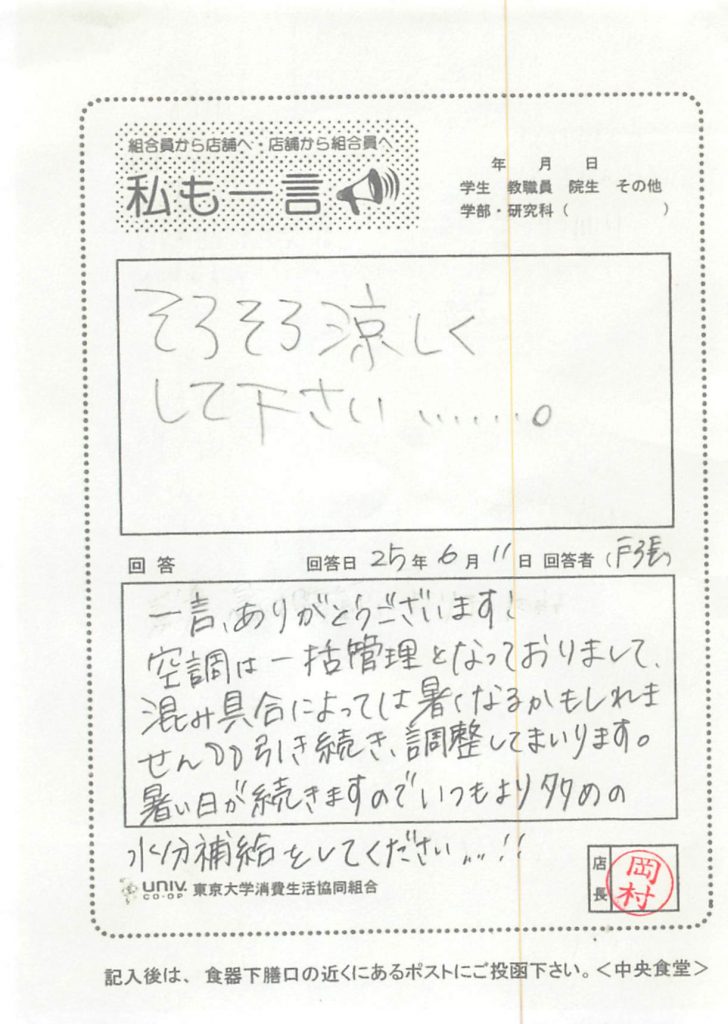 組合員から店舗へ・店舗から組合員へ
私も一言
年 月 日
学生 教職員 院生 その他
学部・研究科（ ）
そろそろ涼しく
して下さい……。
回答 回答日 25年 6月 11日 回答者（戸張）
一言、ありがとうございます！
空調は一括管理となっておりまして、
混み具合によっては暑くなるかもしれま
せんが引き続き、調整してまいります。
暑い日が続きますのでいつもより多めの
水分補給をしてください…!!
UNIV. CO-OP 東京大学消費生活協同組合
店長 岡村
記入後は、食器下膳口の近くにあるポストにご投函下さい。＜中央食堂＞